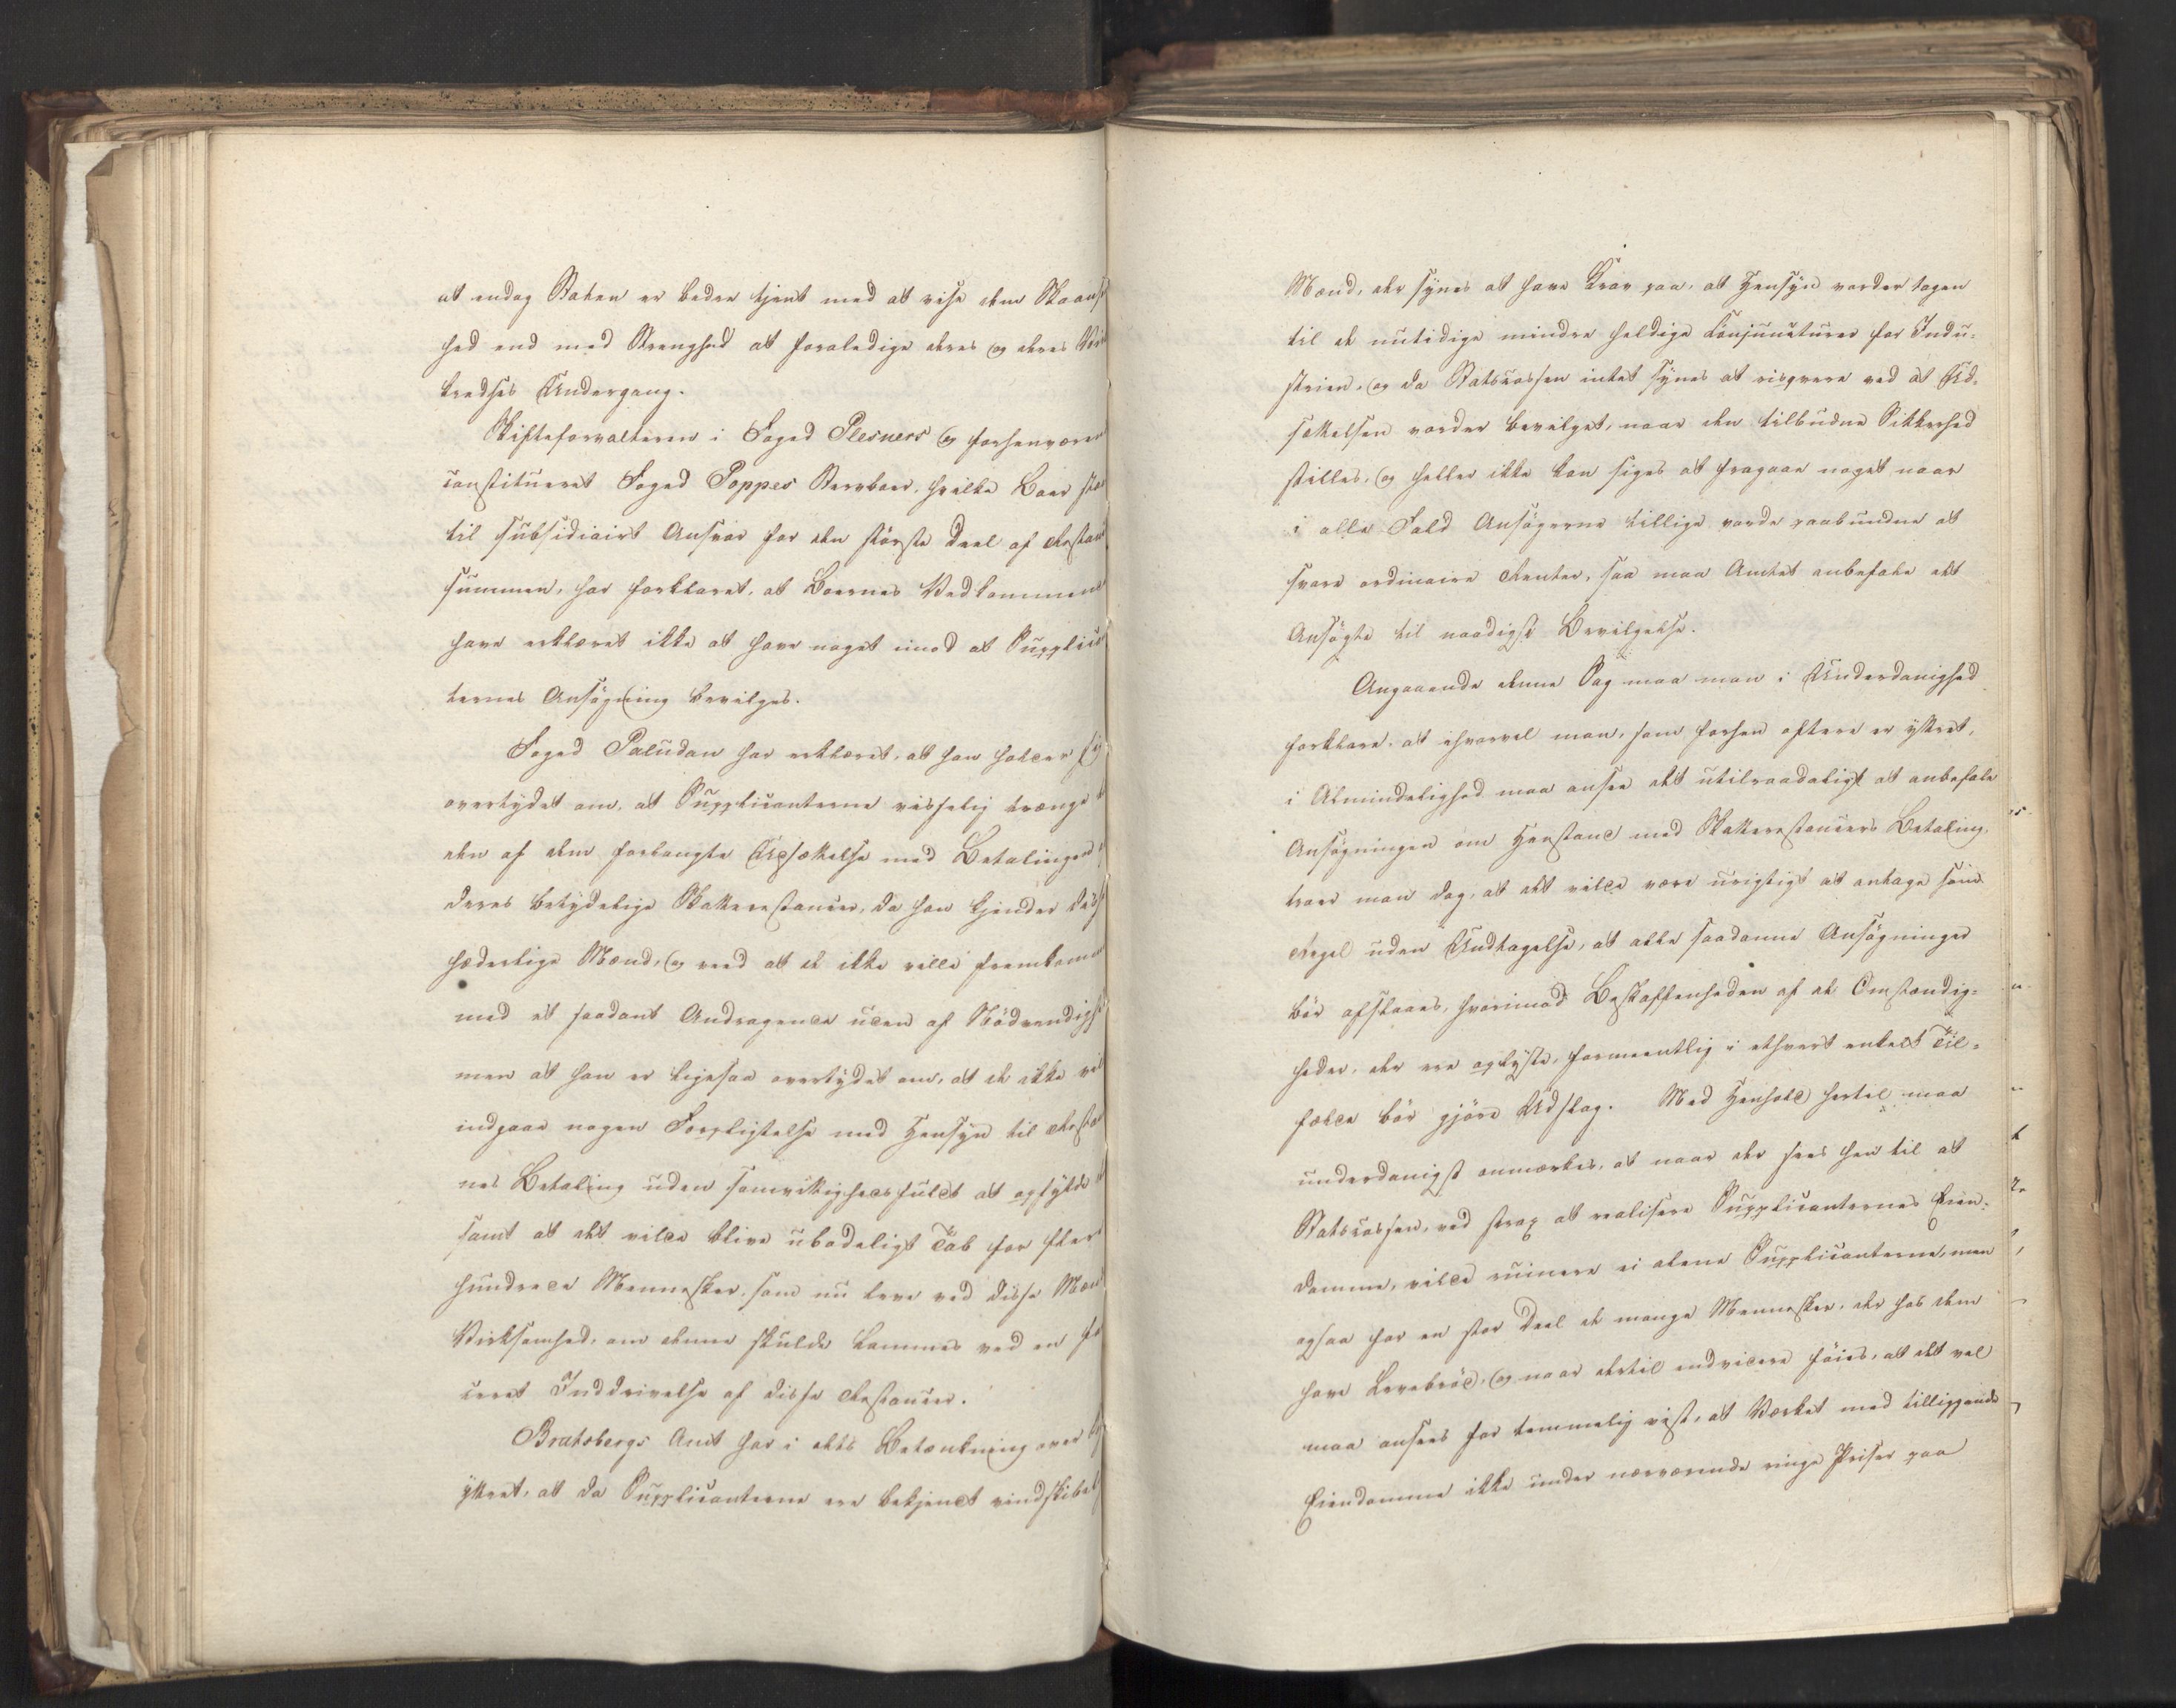 at endog Staten er bedre tjent med at vise dem Skaans
hed end med Strenghed at foraledige deres og deres Virk
kredses Undergang.
Skifteforvalteren i Foged Plesners og forhenværen
constitueret Foged Poppes Stervboer, hvilke Boer staae
til subsidiairt Ansvar for den største Deel af Restance
summen, har forklaret, at Boernes Vedkommende
have erklæret ikke at have noget imod at Supplican
ternes Ansøgning bevilges.
Foged Paludan har erklæret, at han holder sig
overtydet om, at Supplicanterne visselig trænge til
den af dem forlangte Udsættelse med Betalingen af
deres betydelige Skatterestancer, da han kjender disse
hæderlige Mænd, og veed at de ikke ville fremkomme
med et saadant Andragende uden af Nødvendighed
men at han er ligesaa overtydet om, at de ikke vil
indgaae nogen Forpligtelse med Hensyn til Restancer
nes Betaling uden samvittighedsfuldt at opfylde
samt at det vilde blive ubodeligt Tab for flere
hundrede Mennesker, som nu leve ved disse Mænds
Virksomhed, om denne skulde lammes ved en for
ceret Inddrivelse af disse Restancer.
Bratsbergs Amt har i dets Betænkning over
yttret, at da Supplicanterne ere bekjendt vindskibelige
Mænd, der synes at have Krav paa, at Hensyn vorder tagen
til de nutidige mindre heldige Conjuncturer for Indu-
strien, og da Statscassen intet synes at risqvere ved at Ud-
sættelsen vorder bevilget, naar den tilbudne Sikkerhed
stilles, og heller ikke kan siges at fragaae noget naar
i alle Fald Ansøgerne tillige vorde paabundne at
svare ordinaire Renter, saa maa Amtet anbefale det
Ansøgte til naadigst Bevilgelse.
Angaaende denne Sag maa man i Underdanighed
forklare, at ihvorvel man, som forhen oftere er yttret,
i Almindelighed maa ansee det utilraadeligt at anbefale
Ansøgningen om Henstand med Skatterestancers Betaling,
troer man dog, at det vilde være urigtigt at antage som
Regel uden Undtagelse, at alle saadanne Ansøgninger
bør afslaaes, hvorimod Beskaffenheden af de Omstændig-
heder, der ere oplyste, formeentlig i ethvert enkelt Til-
fælde bør gjøre Udslag. Med Henhold hertil maa
underdanigst anmærkes, at naar der sees hen til at
Statscassen, ved strax at realisere Supplicanternes Eien-
domme, vilde ruinere ei alene Supplicanterne, men
ogsaa for en stor Deel de mange Mennesker, der hos dem
have Levebrød, og naar dertil endvidere føies, at det vel
maa ansees for temmelig vist, at Værket med tilliggende
Eiendomme ikke under nærværende ringe Priser paa